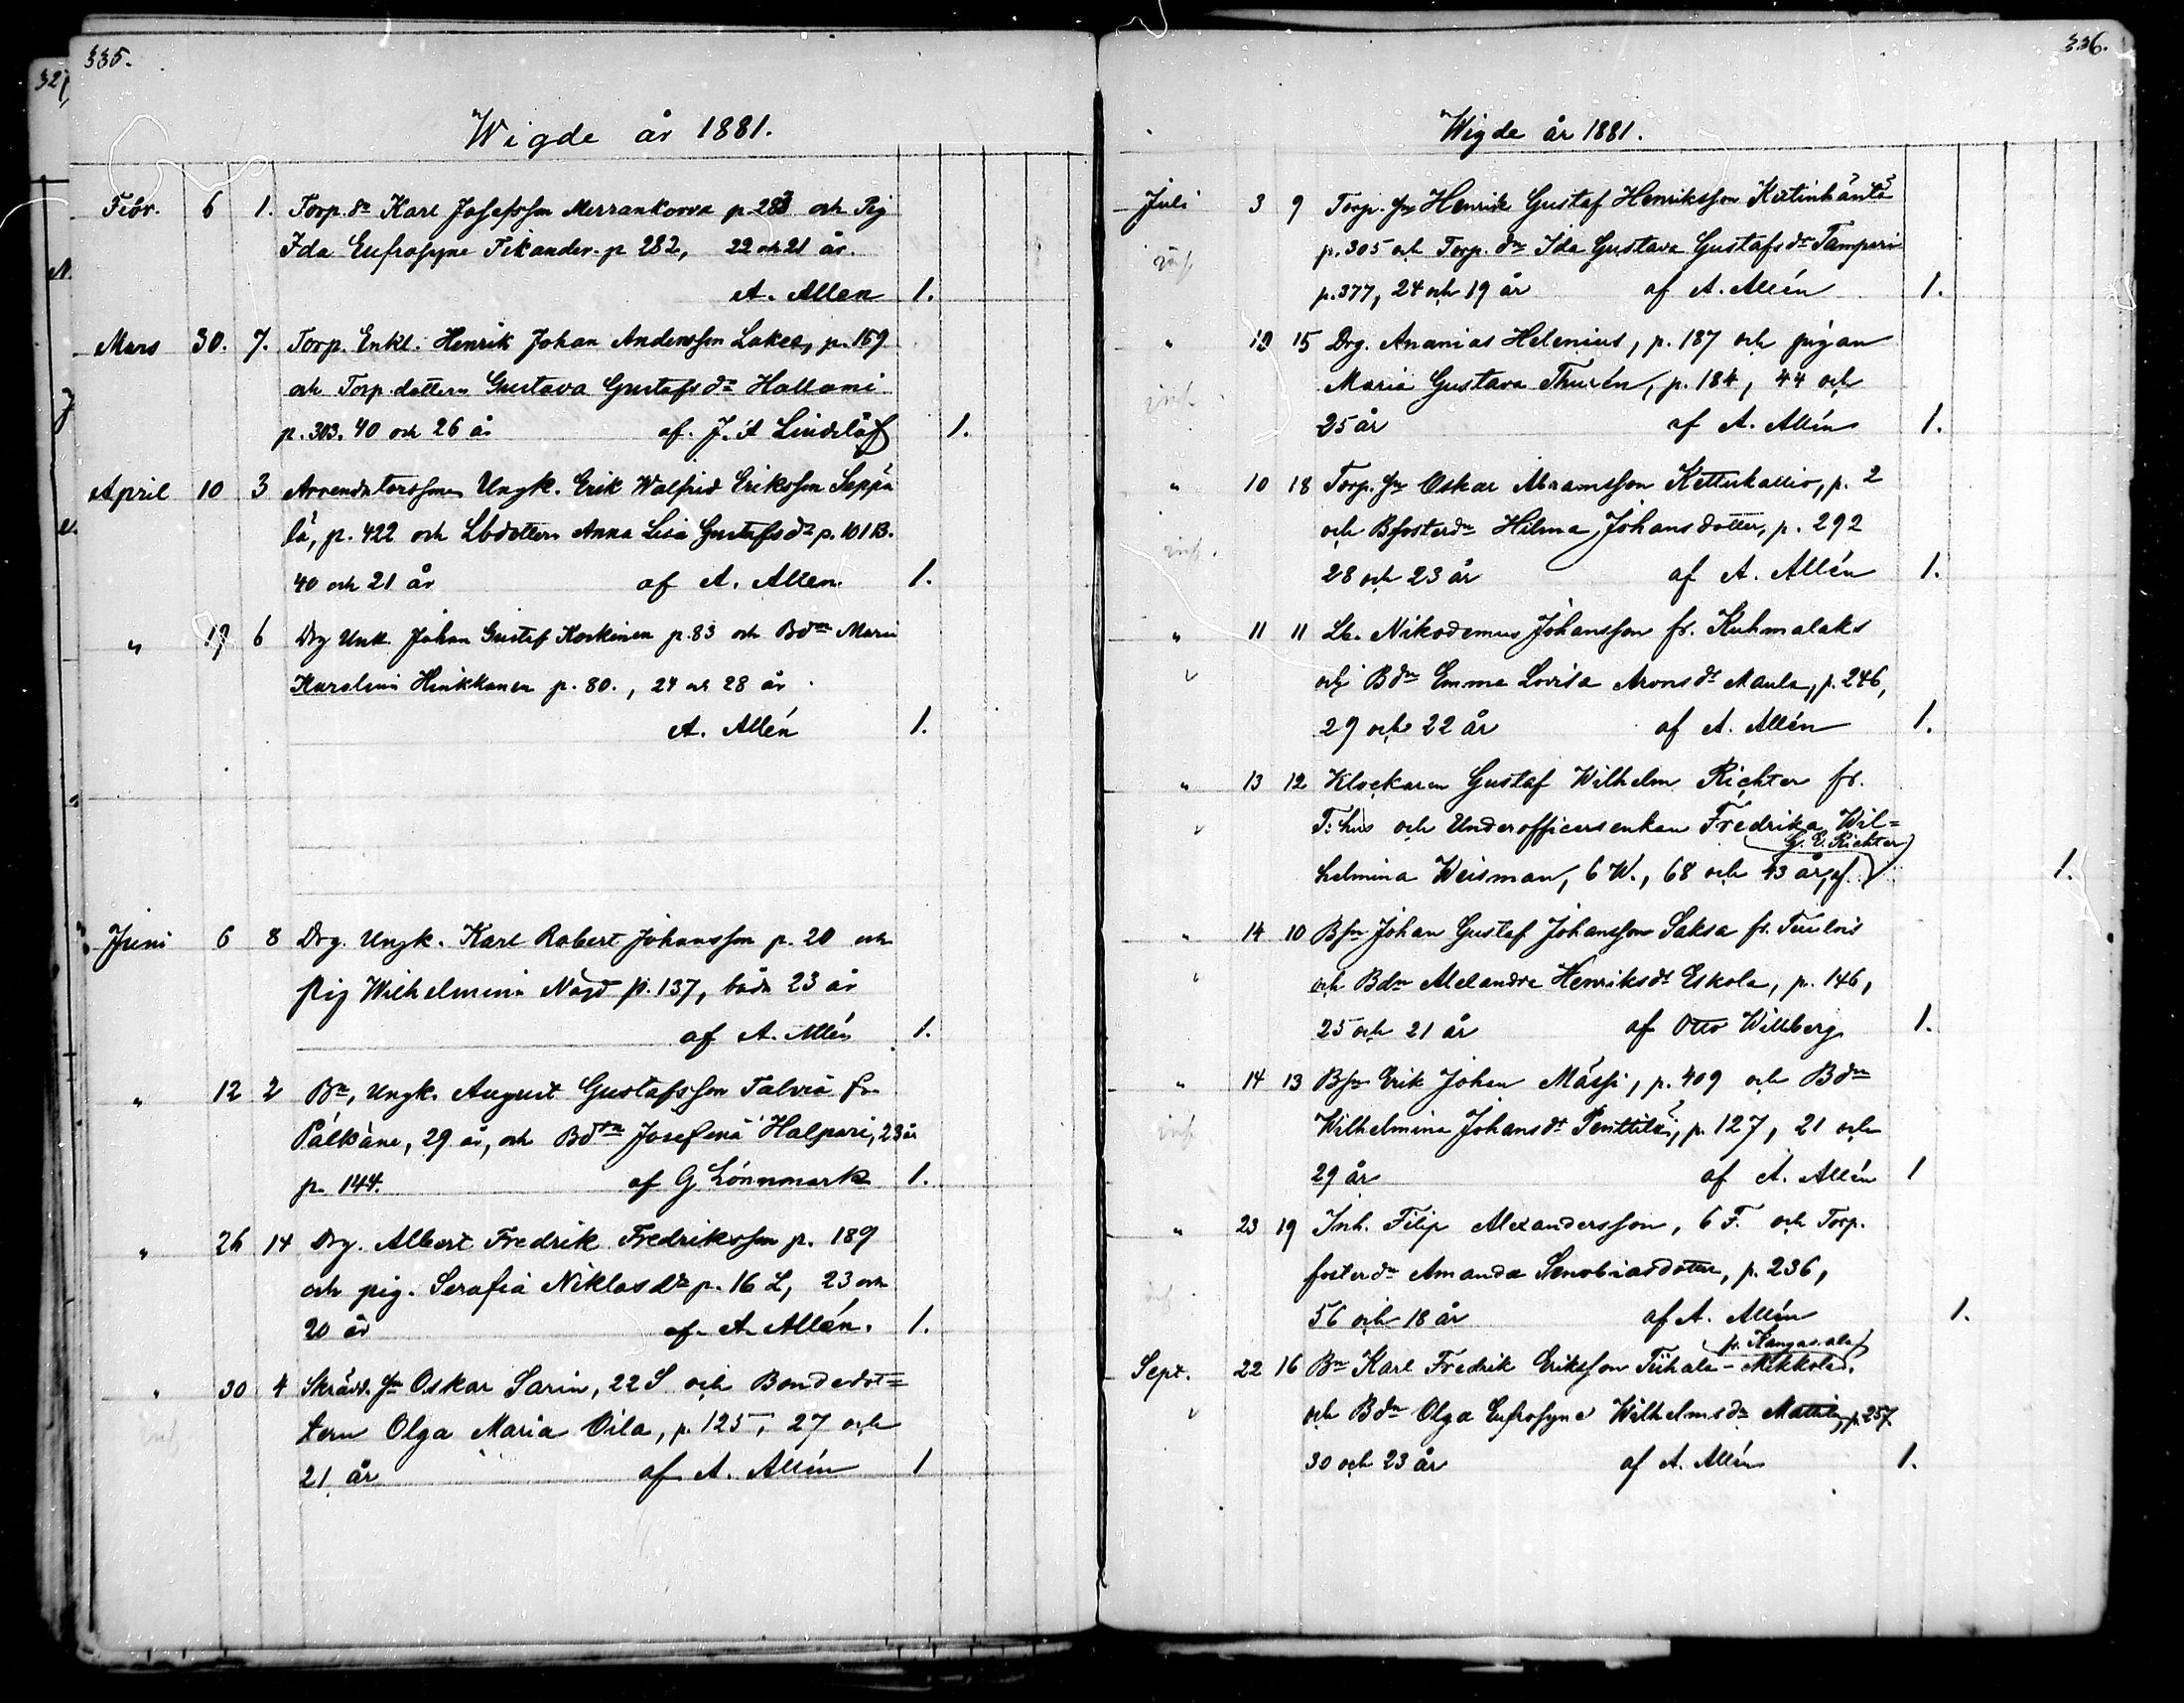 335.
Wigde år 1881.
Febr. 6 1. Torp. sn Karl Josefsson Merrankorva p. 283 och Pig
Ida Eufrosyne Tikander p 282, 22 och 21 år.
A. Allén 1.
Mars 30. 7. Torp. Enkl. Henrik Johan Andersson Lakee, p. 159
och Torp. dottern Gustava Gustafs dr Hallami
p. 303. 40 och 26 år af. J. A Lindelöf 1.
April 10 3 Arrendatorssonen Ungk. Erik Walfrid Eriksson Seppä
lä, p. 422 och Lbdottern Anna Lisa Gustafs dr p. 101 B.
40 och 21 år af A. Allén. 1.
" 19 6 Drg Unk. Johan Gustaf Koskinen p. 83 och Bdrn Maria
Karolina Hinkkanen p. 80., 24 och 28 år.
A. Allén 1.
Juni 6 8 Drg. Ungk. Karl Robert Johansson p. 20 och
pig Wilhelmina Nöjd p. 137, båda 23 år
af A. Allén 1.
" 12 2 Bn, Ungk. August Gustafsson Talvia fr.
Pälkäne, 29 år, och Bdrn Josefina Halpari, 23 år
p. 144. af G Lönnmark 1.
" 26 14 Drg. Albert Fredrik Fredriksson p. 189
och pig. Serafia Niklasdr p. 16 L, 23 och
20 år af A. Allén. 1.
" 30 4 Skrädd. sn Oskar Sarin, 22 S och Bondedot=
inf tern Olga Maria Oila, p. 125, 27 och
21 år af A. Allén 1
336.
Wigde år 1881.
Juli 3 9 Torp. sn Henrik Gustaf Henriksson
inf p. 305 och Torp. dn Ida Gustava Gustafs dr Tampari
p. 377, 24 och 19 år af A. Allén 1.
" 10 15 Drg. Ananias Helenius, p. 187 och pigan
inf Maria Gustava Thurén, p. 184, 44 och
25 år af A. Allén 1.
" 10 18 Torp. sn Oskar Abramsson Ketturkallio, p. 2
inf. och Bfosterdn Hilma Johansdotter, p. 292
28 och 23 år af A. Allén 1.
" 11 11 Lb. Nikodemus Johansson fr. Kuhmalaks
och Bdn Emma Lovisa Aronsdr Maula, p. 246,
29 och 22 år af A. Allén 1.
" 13 12 Klockaren Gustaf Wilhelm Richter fr.
T:hus och Underofficersenkan Fredrika Wil=
G. E. Richter
helmina Weisman, 6 W., 68 och 43 år, af 1.
" 14 10 Bsn Johan Gustaf Johansson Saksa fr. Tuulois
och Bdn Alexandra Henriksdr Eskola, p. 146,
25 och 21 år af Otto Willberg 1.
" 14 13 Bsn Erik Johan Mässi, p. 409 och Bdn
inf Wilhelmina Johansdr Penttilä, p. 127, 21 och
29 år af A. Allén 1
" 23 19 Inh. Filip Alexandersson, 6 F. och Torp.
inf fosterdn Amanda Senobiasdotter, p. 236,
56 och 18 år af A. Allén 1.
fr. Kangasala
Sept. 22 16 Bn Karl Fredrik Eriksson Tiihala-Mikkola
och Bdn Olga Eufrosyne Wilhelmsdr Mattila, p. 257
30 och 23 år af A. Allén 1.